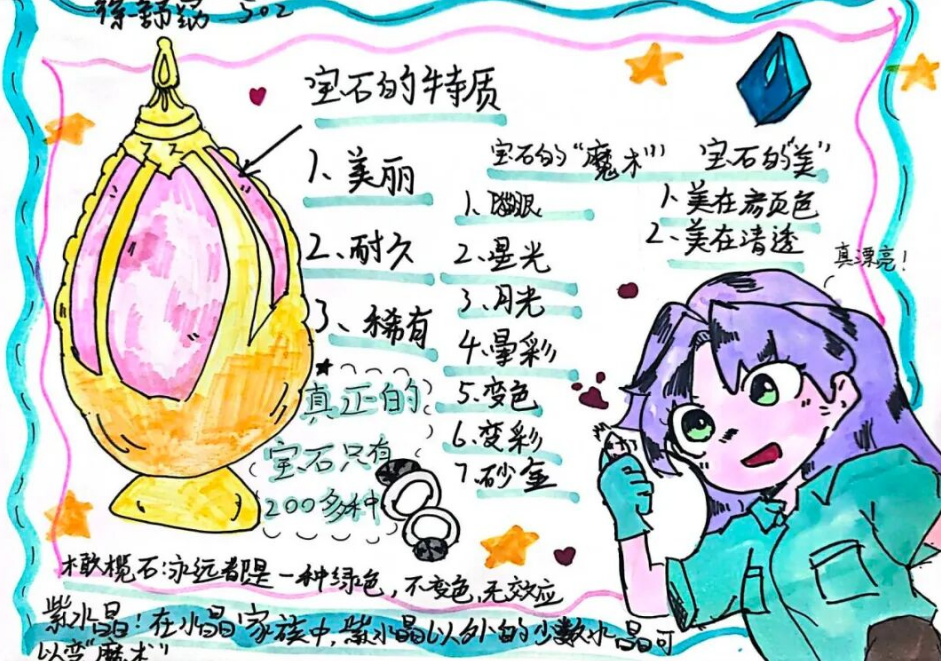 502
宝石的特质
1、美丽
2、耐久
3、稀有
真正的
宝石只有
200多种
宝石的“魔术”
1、猫眼
2、星光
3、月光
4、晕彩
5、变色
6、变彩
7、砂金
宝石的“美”
1、美在颜色
2、美在清透
真漂亮!
橄榄石:永远都是一种绿色,不变色,无效应
紫水晶!在水晶家族中,紫水晶以外的少数水晶可
以变“魔术”